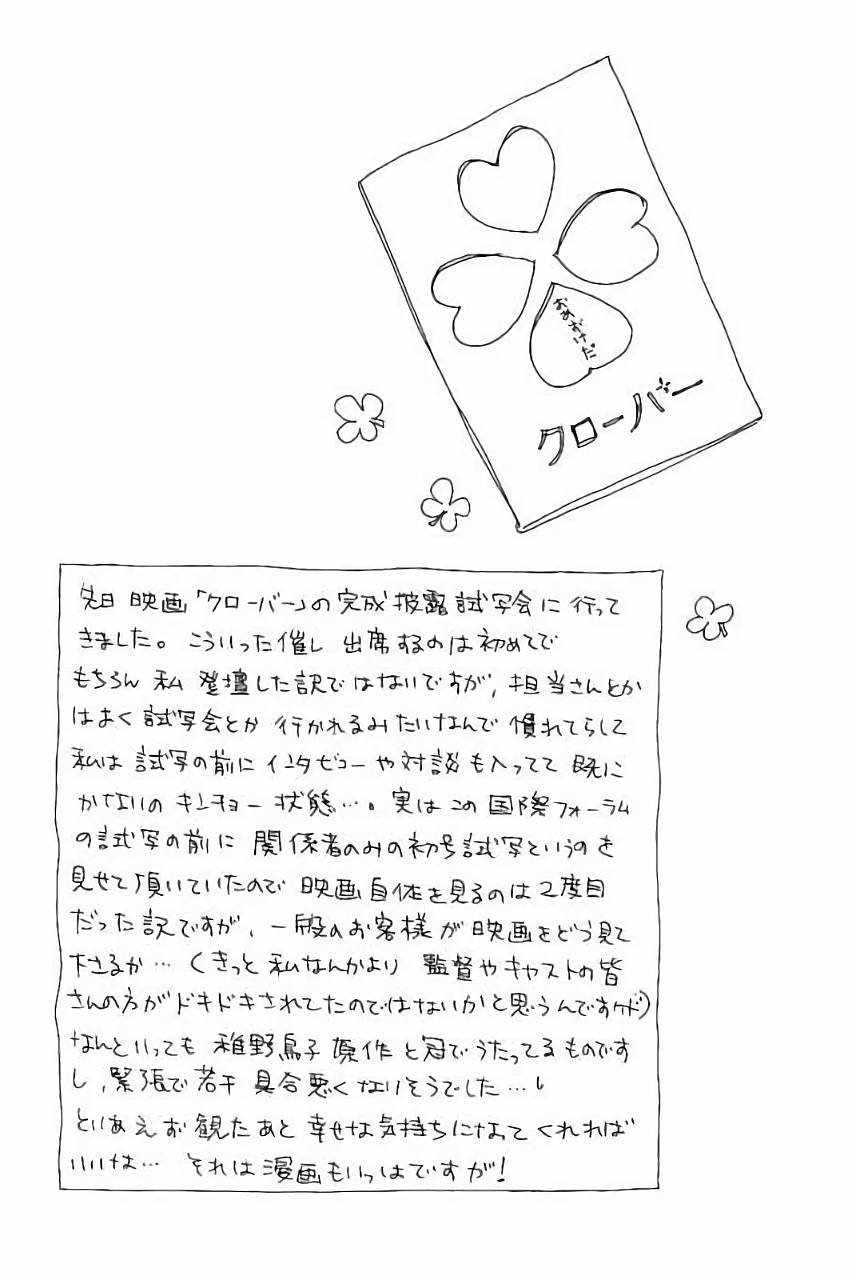 おあずけだ
クローバー
先日 映画「クローバー」の完成披露試写会に行って
きました。こういった催し 出席するのは初めてで
もちろん 私 登壇した訳ではないですが、担当さんとか
はよく試写会とか 行かれるみたいなんで 慣れてらして
私は 試写の前に インタビューや対談も入ってて 既に
かなりの キンチョー 状態…。実は この 国際フォーラム
の試写の前に 関係者のみの初号試写というのを
見せて頂いていたので 映画自体を見るのは2度目
だった訳ですが、一般のお客様が映画をどう見て
下さるか… (きっと 私なんかより 監督やキャストの皆
さんの方がドキドキされてたのではないかと思うんですケド)
なんといっても 稚野鳥子 原作 と冠でうたってるものです
し、緊張で若干 具合悪くなりそうでした…
とりあえず 観たあと 幸せな気持ちになってくれれば
いいな… それは漫画もいっしょですが!